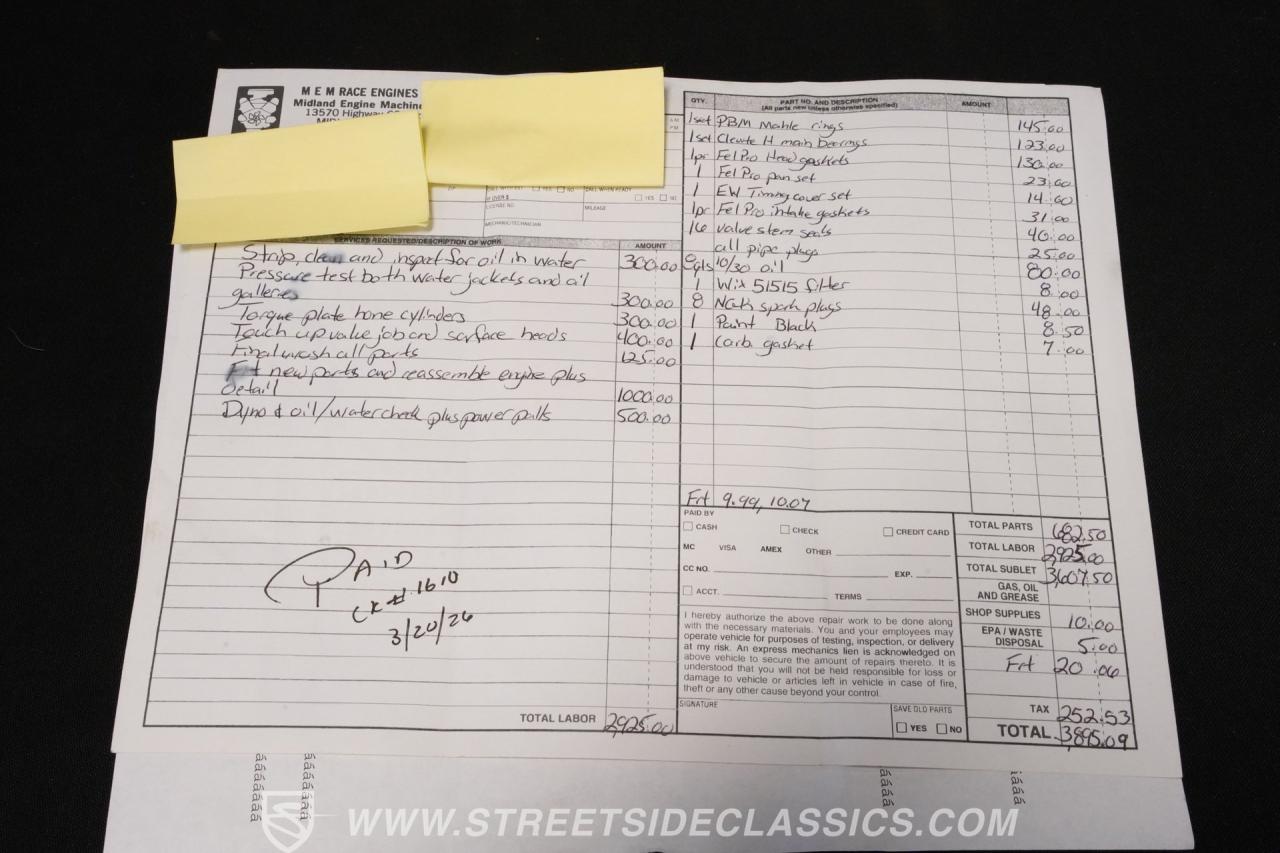 M E M RACE ENGINES
Midland Engine Machine
13570 Highway
YES NO
CALL WHEN READY
YES NO
LICENSE NO.
MILEAGE
MECHANIC/TECHNICIAN
SERVICES REQUESTED/DESCRIPTION OF WORK AMOUNT
Strip, clean and inspect for oil in water 300.00
Pressure test both water jackets and oil
galleries 300.00
Torque plate hone cylinders 300.00
Touch up valve job and surface heads 400.00
Final wash all parts 125.00
Fit new parts and reassemble engine plus
detail 1000.00
Dyno & oil/water check plus power pulls 500.00
PAID
CK # 1610
3/20/26
TOTAL LABOR 2925.00
QTY. PART NO. AND DESCRIPTION AMOUNT
(All parts new unless otherwise specified)
1set PBM Mahle rings 145.00
1set Clevite H main bearings 123.00
1pr FelPro Head gaskets 130.00
1 FelPro pan set 23.00
1 EW Timing cover set 14.00
1pr FelPro intake gaskets 31.00
16 valve stem seals 40.00
all pipe plugs 25.00
8qts 10/30 oil 80.00
1 Wix 51515 filter 8.00
8 NGK spark plugs 48.00
1 Paint Black 8.50
1 Carb gasket 7.00
Frt 9.99, 10.07
PAID BY
CASH CHECK CREDIT CARD
MC VISA AMEX OTHER
CC NO. EXP.
ACCT. TERMS
I hereby authorize the above repair work to be done along
with the necessary materials. You and your employees may
operate vehicle for purposes of testing, inspection, or delivery
at my risk. An express mechanics lien is acknowledged on
above vehicle to secure the amount of repairs thereto. It is
understood that you will not be held responsible for loss or
damage to vehicle or articles left in vehicle in case of fire,
theft or any other cause beyond your control.
SIGNATURE
SAVE OLD PARTS
YES NO
TOTAL PARTS 682.50
TOTAL LABOR 2925.00
TOTAL SUBLET 3607.50
GAS, OIL
AND GREASE
SHOP SUPPLIES 10.00
EPA / WASTE
DISPOSAL 5.00
Frt 20.06
TAX 252.53
TOTAL 3895.09
WWW.STREETSIDECLASSICS.COM